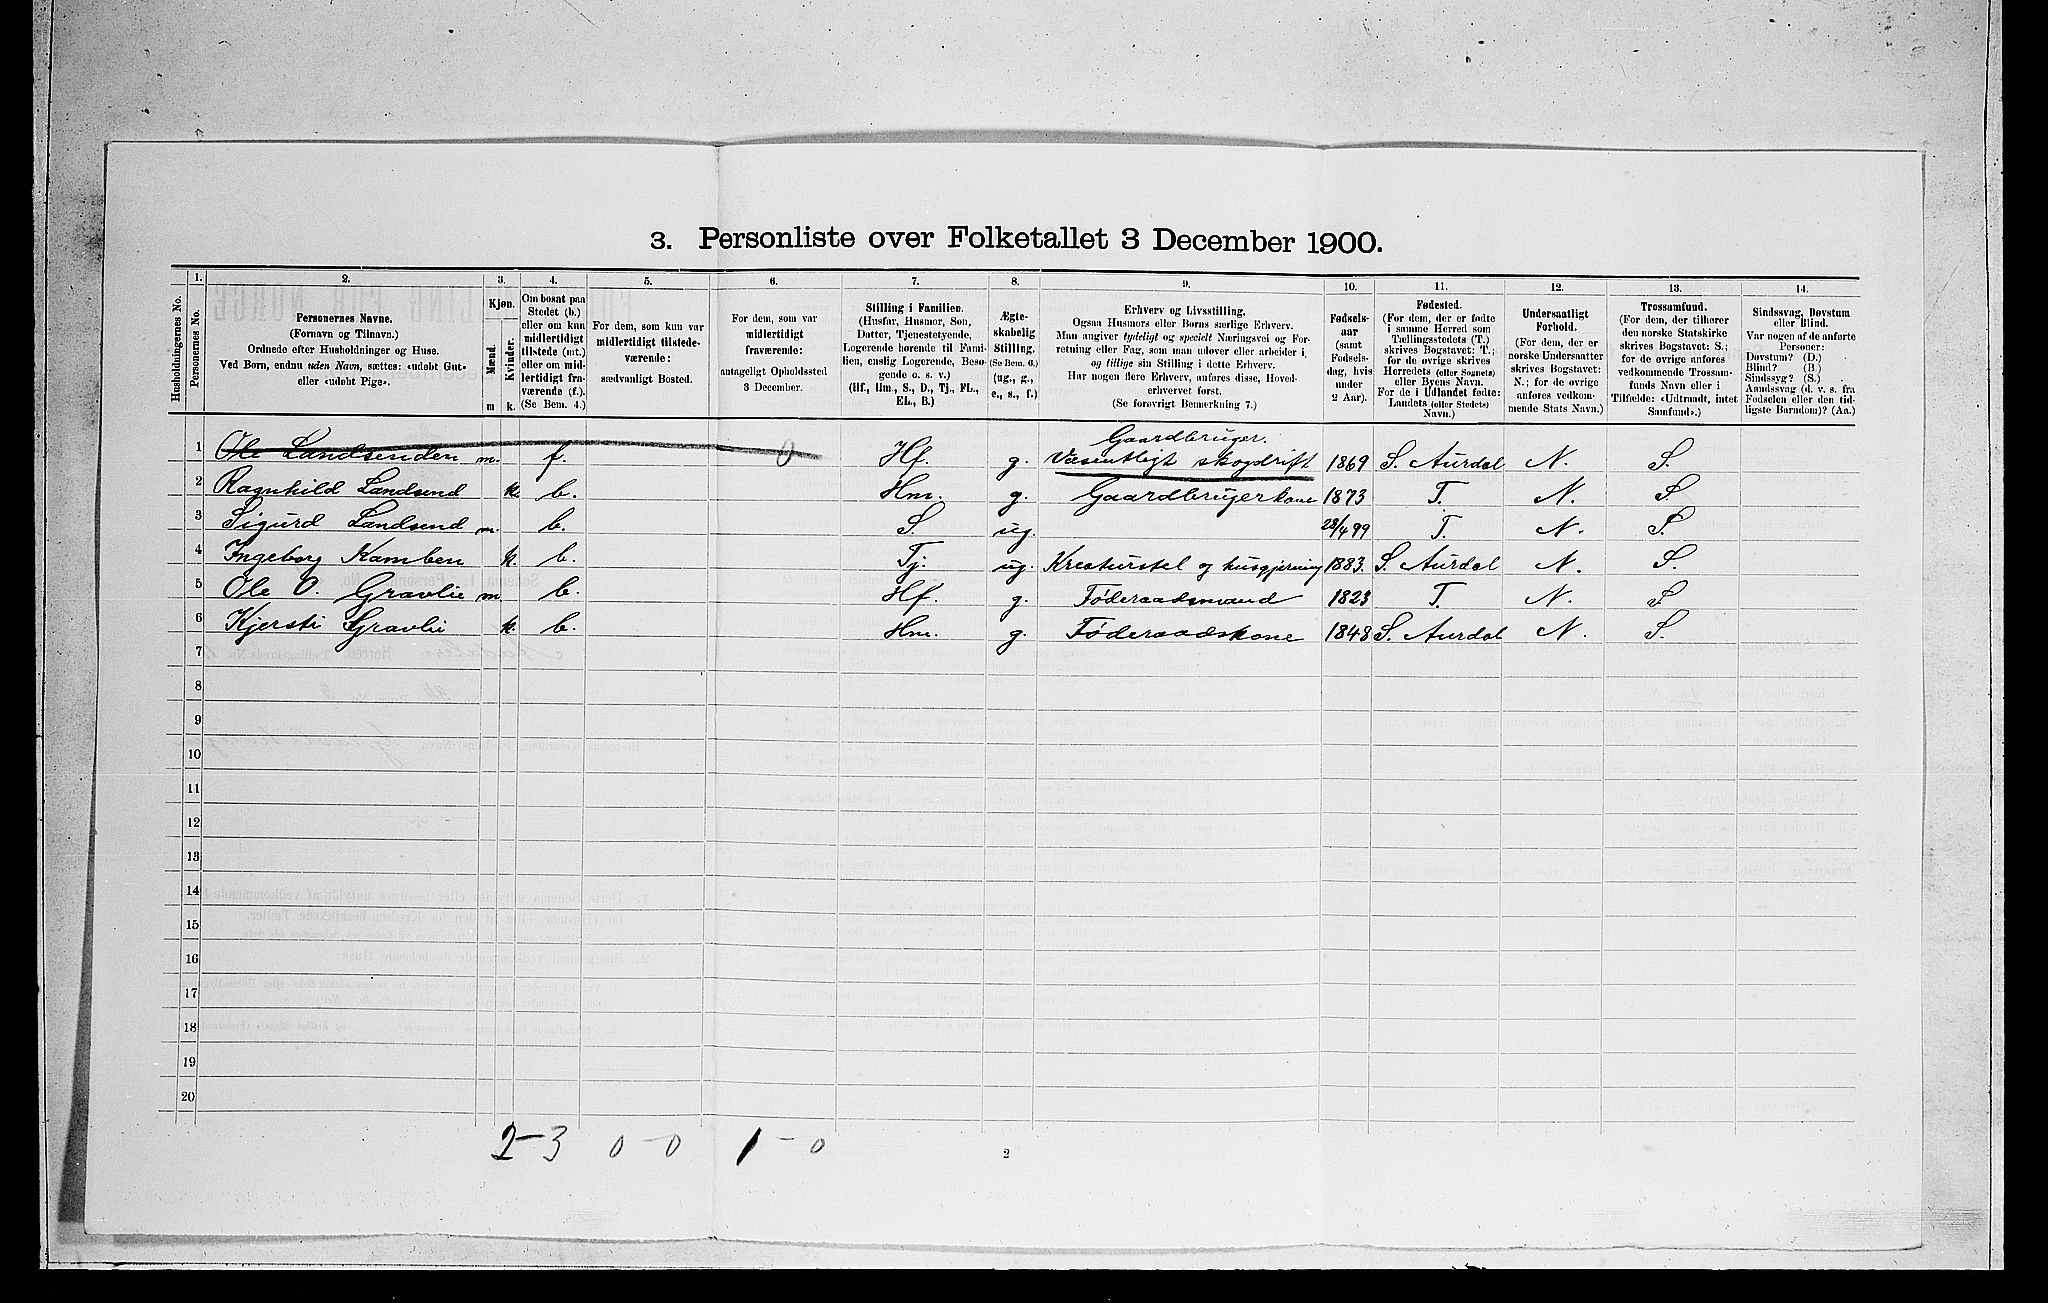 3. Personliste over Folketallet 3 December 1900.
Husholdningernes No.
1.
Personernes No.
2.
Personernes Navne.
(Fornavn og Tilnavn.)
Ordnede efter Husholdninger og Huse.
Ved Børn, endnu uden Navn, sættes: «udøbt Gut»
eller «udøbt Pige».
3.
Kjøn.
Mænd.
Kvinder.
m
k.
4.
Om bosat paa
Stedet (b.)
eller om kun
midlertidigt
tilstede (mt.)
eller om mid-
lertidigt fra-
værende (f.).
(Se Bem. 4.)
5.
For dem, som kun var
midlertidigt tilstede-
værende:
sædvanligt Bosted.
6.
For dem, som var
midlertidigt
fraværende:
antageligt Opholdssted
3 December.
7.
Stilling i Familien.
(Husfar, Husmor, Søn,
Datter, Tjenestetyende,
Logerende hørende til Fami-
lien, enslig Logerende, Besø-
gende o. s. v.)
(Hf., Hm., S., D., Tj., FL.,
EL., B.)
8.
Ægte-
skabelig
Stilling.
(Se Bem. 6.)
(ug., g.,
e., s., f.)
9.
Erhverv og Livsstilling.
Ogsaa Husmors eller Børns særlige Erhverv.
Man angiver tydeligt og specielt Næringsvei og For-
retning eller Fag, som man udøver eller arbeider i,
og tillige sin Stilling i dette Erhverv.
Har nogen flere Erhverv, anføres disse, Hoved-
erhvervet først.
(Se forøvrigt Bemerkning 7.)
10.
Fødsels-
aar
(samt
Fødsels-
dag, hvis
under
2 Aar).
11.
Fødested.
(For dem, der er fødte
i samme Herred som
Tællingsstedets (T.)
skrives Bogstavet: T.;
for de øvrige skrives
Herredets (eller Sognets)
eller Byens Navn.
For de i Udlandet fødte:
Landets (eller Stedets)
Navn.)
12.
Undersaatligt
Forhold.
(For dem, der er
norske Undersaatter
skrives Bogstavet:
N.; for de øvrige
anføres vedkom-
mende Stats Navn.)
13.
Trossamfund.
(For dem, der tilhører
den norske Statskirke
skrives Bogstavet: S.;
for de øvrige anføres
vedkommende Trossam-
funds Navn eller i
Tilfælde: «Udtraadt, intet
Samfund».)
14.
Sindssvag, Døvstum
eller Blind.
Var nogen af de anførte
Personer:
Døvstum? (D.)
Blind? (B.)
Sindssyg? (S.)
Aandssvag (d. v. s. fra
Fødselen eller den tid-
ligste Barndom)? (Aa.)
Gaardbruger.
1 Ole Landsenden m. f. 0 Hf. g. Væsentligt skogdrift 1869 S. Aurdal N. S.
2 Ragnhild Landsend k. b. Hm. g. Gaardbrugerkone 1873 T. N. S
3 Sigurd Landsend m. b. S. ug. 28/4 99 T. N. S
4 Ingeborg Kamben k. b. Tj. ug. Kreaturstel og husgjerning 1883. S. Aurdal N. S.
5 Ole O. Gravlie m. b. Hf. g. Føderaadsmand 1823 T. N. S
6 Kjersti Gravlie k. b. Hm. g. Føderaadskone 1848 S. Aurdal N. S.
7
8
9
10
11
12
13
14
15
16
17
18
19
20
2-3 0-0 1-0
2